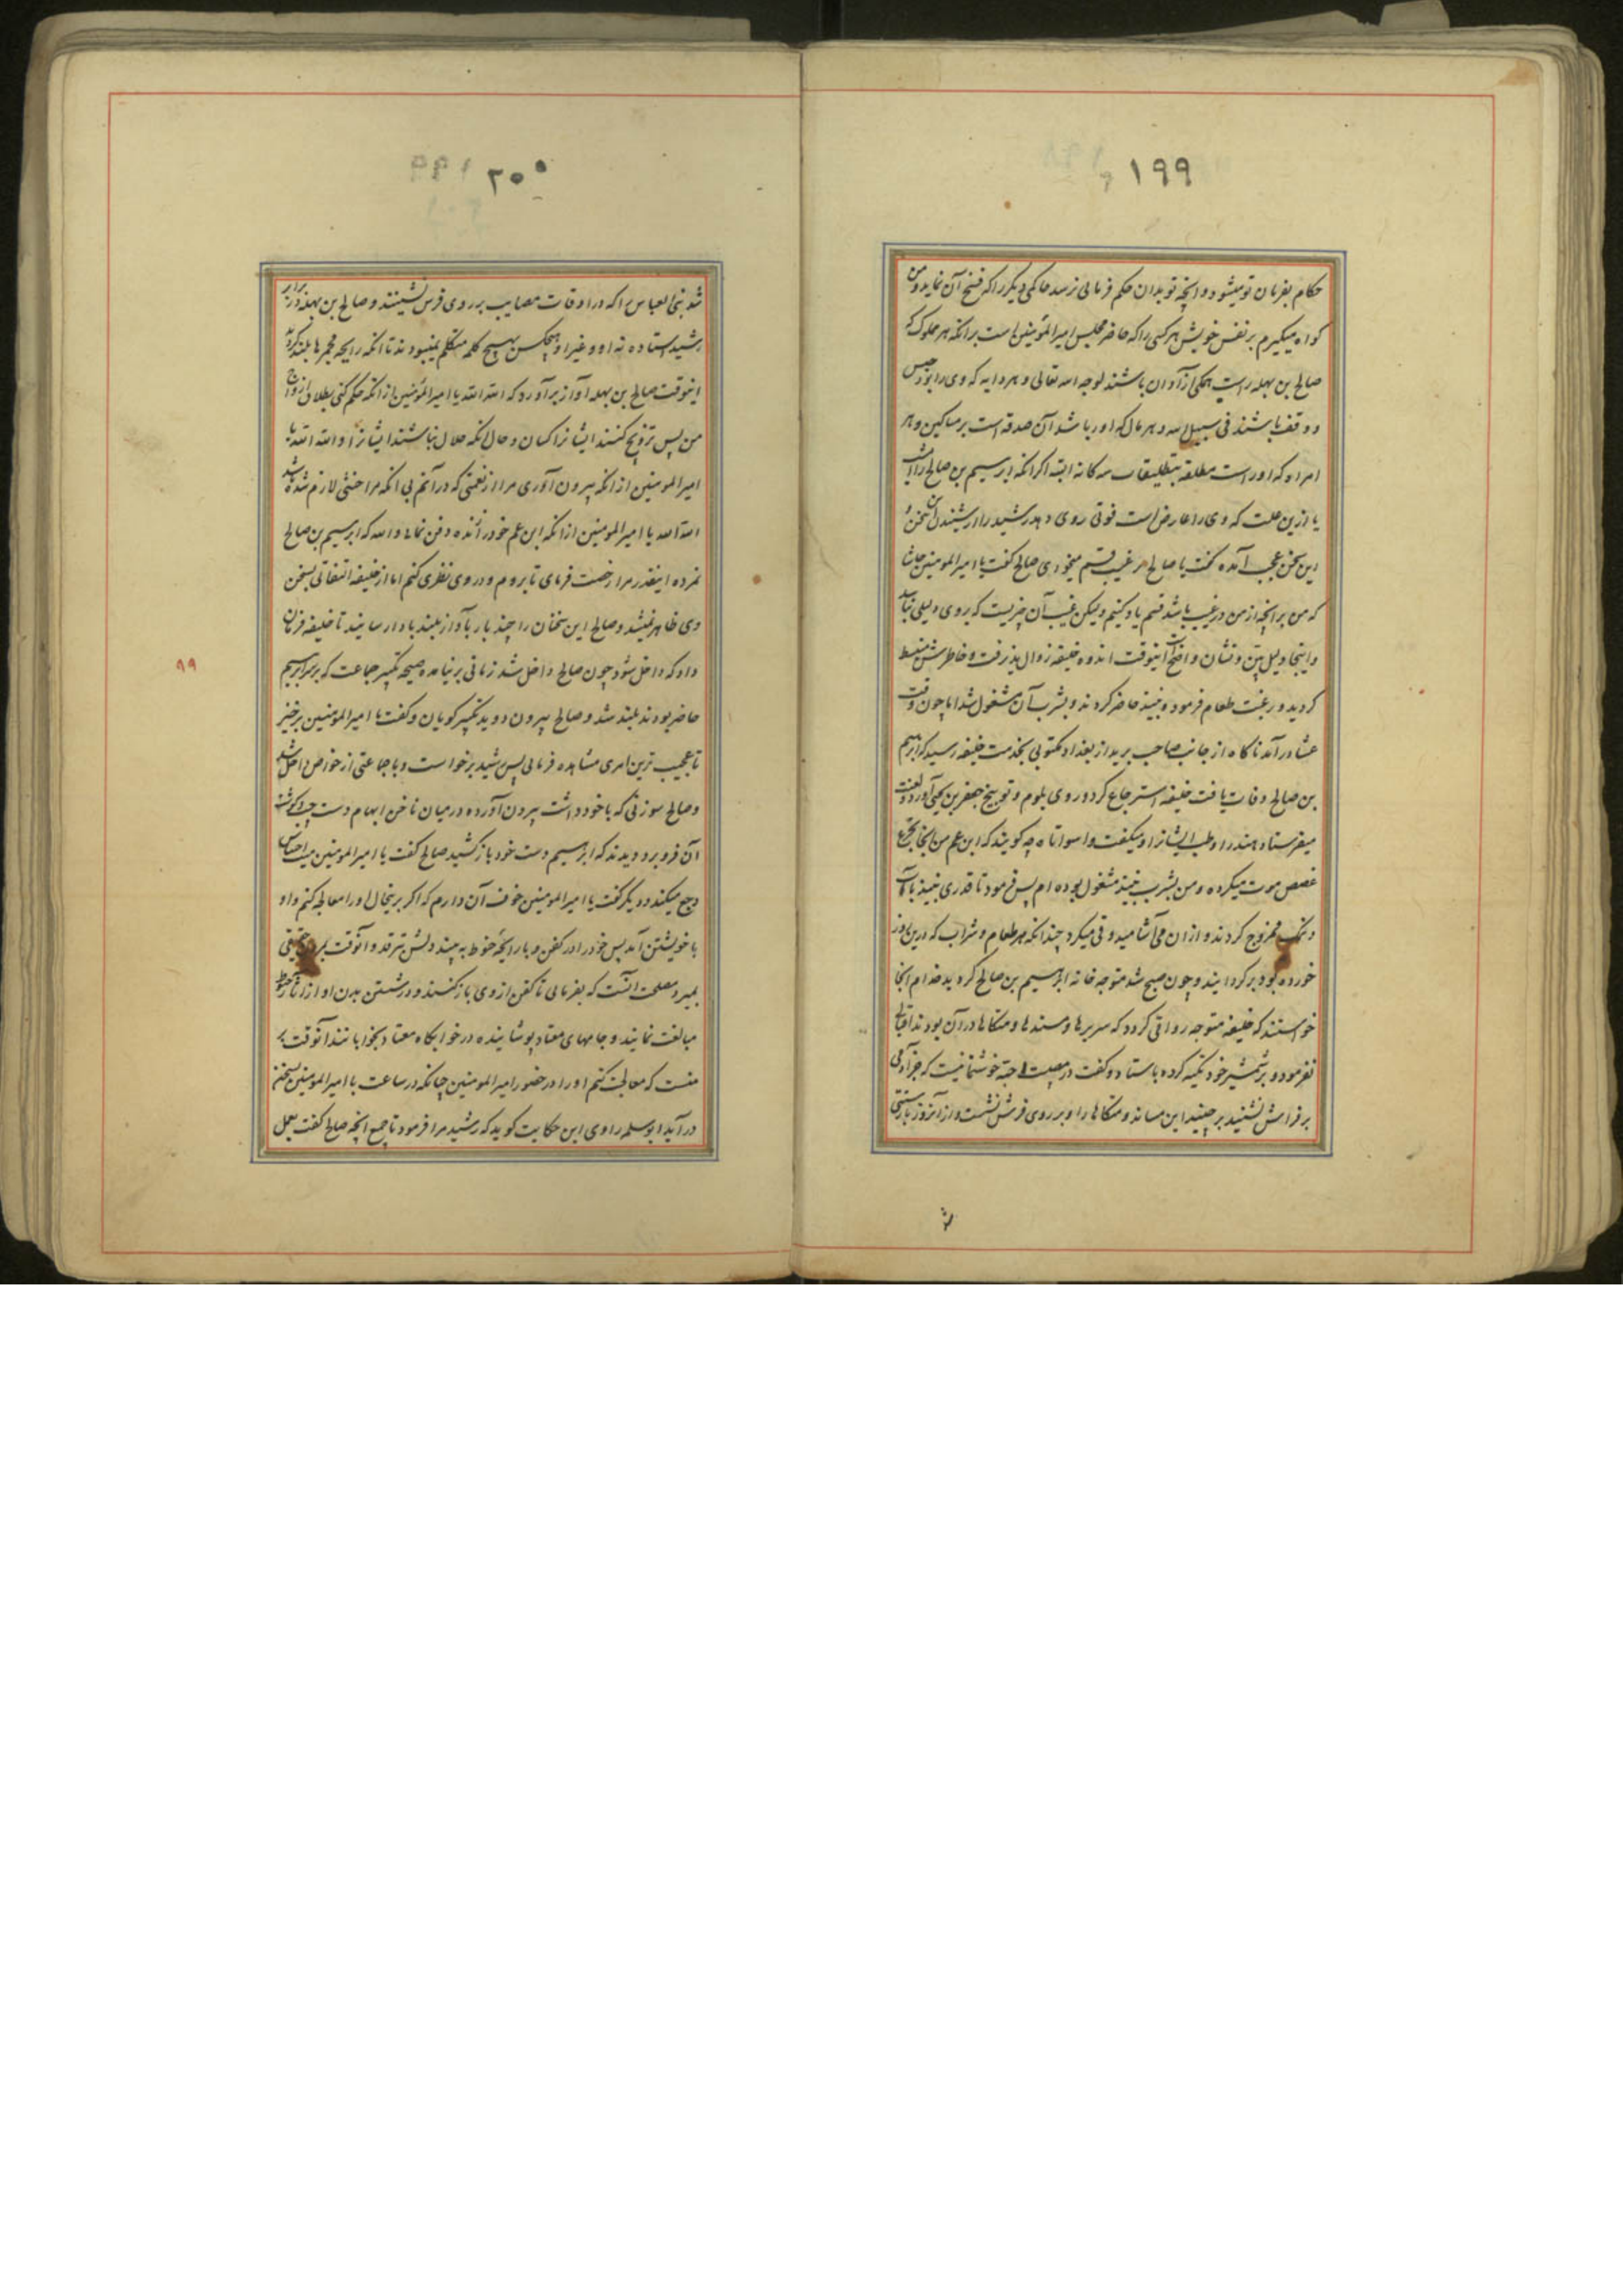 ۱۹۹
حکام بفرمان تو میشود و انچه تو بدان حکم فرمائی نرسد حاکمی دیگر را که فسخ آن نماید و من
گواه میگیرم بر نفس خویش هر کسی را که حاضر مجلس امیرالمؤمنین است بر انکه هر مملوک که
صالح بن بهله راست همگی آزادان باشند لوجه الله تعالی و هر دابه که وی را بود حبس
و وقف باشند فی سبیل الله و هر مال که او را باشد آن صدقه است بر مساکین و هر
امراه که او راست مطلقه بتطلیقات سه کانه البته اگر انکه ابرهیم بن صالح را امشب
یا ازین علت که وی را عارض است فوتی روی دهد رشید را از شنیدن این سخن
این سخن عجب آمده گفت یا صالح بر غیب قسم میخوری صالح گفت یا امیرالمومنین حاشا
که من بر انچه از من در غیب باشد قسم یاد کنم ولیکن غیب آن چیزیست که بر وی دلیلی نباشد
و اینجا دلیل بین و نشان واضح است اینوقت اندوه خلیفه زوال پذیرفت و خاطرش منبسط
گردید و رغبت طعام فرمود و نبیذ حاضر کردند و بشرب آن مشغول شد اما چون وقت
عشا در آمد ناکاه از جانب صاحب برید از بغداد مکتوبی بخدمت خلیفه رسید که ابرهیم
بن صالح وفات یافت خلیفه استرجاع کرد و روی بلوم و توبیخ جعفر بن یحیی آورد و لعنت
میفرستاد هند را و طب ایشانرا و میگفت واسواتاه چه گویند که ابن عم من اینجا تجرع
غصص موت میکرده و من بشرب نبیذ مشغول بوده ام پس فرمود تا قدری نبیذ با آب
و نمک ممزوج کردند و از ان می آشامید و قی میکرد چندانکه هر طعام و شراب که درین روز
خورده بود برگردانید و چون صبح شد متوجه خانه ابرهیم بن صالح گردید خدام انجا
خواستند که خلیفه متوجه رواقی گردد که سریرها و مسندها و متکاها در آن بود ندا قبالی
نفرمود و بر شمشیر خود تکیه کرده باستاد و گفت در مصیبت احبه خوشنما نیست که جز آدمی
بر فراش نشیند بر چینید این مساند و متکاها را و بر روی فرش نشست و از آنروز باز سنتی
۲۰۰
شد بنی العباس را که در اوقات مصایب بر روی فرش نشینند و صالح بن بهله در برابر
رشید استاده نه او و غیر او هیچکس بهیچ کلمه متکلم نمیبودند تا انکه رایحه مجمرها بلند گردید
اینوقت صالح بن بهله آواز برآورد که الله الله یا امیرالمؤمنین از انکه حکم کنی بطلاق ازواج
من پس تزویج کنند ایشانرا کسان و حال انکه حلال نباشند ایشانرا و الله الله یا
امیرالمومنین از انکه بیرون آوری مرا از نعمتی که در آنم بی انکه مرا حنثی لازم شده باشد
الله الله یا امیرالمومنین از انکه ابن عم خود را زنده دفن نمائی والله که ابرهیم بن صالح
نمرده اینقدر مرا رخصت فرمای تا بروم و در وی نظری کنم اما از خلیفه التفاتی بسخن
وی ظاهر نمیشد و صالح این سخنان را چند بار بآواز بلند بادا رسانید تا خلیفه فرمان
۹۹
داد که داخل شود چون صالح داخل شد زمانی بر نیامده صیحه تکبیر جماعت که بر سر ابرهیم
حاضر بودند بلند شد و صالح بیرون دوید تکبیر گویان و گفت یا امیرالمومنین برخیز
تا عجیب ترین امری مشاهده فرمائی پس رشید برخواست و با جماعتی از خواص داخل شد
و صالح سوزنی که با خود داشت بیرون آورده در میان ناخن ابهام دست چپ و گوشت
آن فرو برد دیدند که ابرهیم دست خود بازکشید صالح گفت یا امیرالمومنین میت احساس
وجع میکند و دیگر گفت یا امیرالمومنین خوف آن دارم که اگر بر ینحال او را معالجه کنم و او
با خویشتن آمد پس خود را در کفن و با رایحه حنوط به بیند دلش بترقد و آنوقت بمرگ حقیقی
بمیرد مصلحت انست که بفرمائی تا کفن از وی باز کنند و در شستن بدن او از آثار حنوط
مبالغت نمایند و جامهای معتاد پوشانیده در خوابگاه معتاد بخوابانند آنوقت بر
منست که معالجت کنم او را در حضور امیرالمومنین چنانکه در ساعت با امیرالمومنین بسخن
در آید ابو سلمه راوی این حکایت گوید که رشید مرا فرمود تا جمیع انچه صالح گفت بعمل